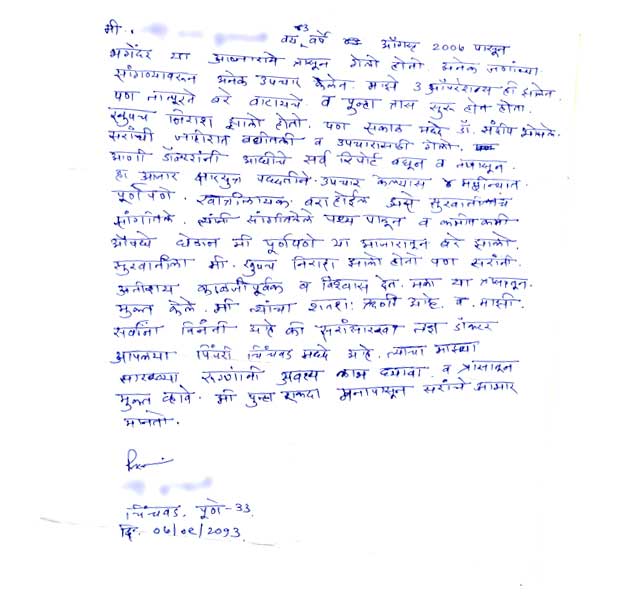 मी.
वय ३३ वर्षे ऑगस्ट २००७ पासुन
भगेंदर या आजाराने त्रासून गेलो होतो अनेक जणांच्या
सांगण्यावरून अनेक उपचार केलेत. माझे ३ ऑपरेशन्स ही झालेत.
पण तात्पुरते बरे वाटायचे व पुन्हा त्रास सुरू होत होता.
खुपच निराश झालो होतो. पण सकाळ मध्ये डॉ. संदीप
सरांची जाहीरात बघीतली व उपचारासाठी गेलो.
आणी डॉक्टरांनी आधीचे सर्व रिपोर्ट बघून व तपासून.
हा आजार क्षारसुत्र पद्धतीने उपचार केल्यास ४ महीन्यात
पूर्णपणे. खात्रीलायक बरा होईल असे सुरवातीलाच
सांगीतले. त्यांनी सांगीतलेले पथ्य पाळून व कमीत कमी
औषधे घेऊन मी पूर्णपणे या आजारातून बरे झालो.
सुरवातीला मी. खुपच निराश झालो होतो पण सरांनी.
अतीशय काळजीपूर्वक व विश्वास देत. मला या त्रासातून.
मुक्त केले. मी त्यांचा शतशः ऋणी आहे. व. माझी
सर्वांना विनंती आहे की सरांसारखा तज्ञ डॉक्टर
आपल्या पिंपरी चिंचवड मध्ये आहे. त्याचा माझ्या
सारख्या रुग्णांनी अवश्य लाभ घ्यावा. व त्रासातून
मुक्त व्हावे. मी पुन्हा एकदा मनापासून सरांचे आभार
मानतो.
चिंचवड. पूणे-३३.
दि. ०७/०८/२०१३.